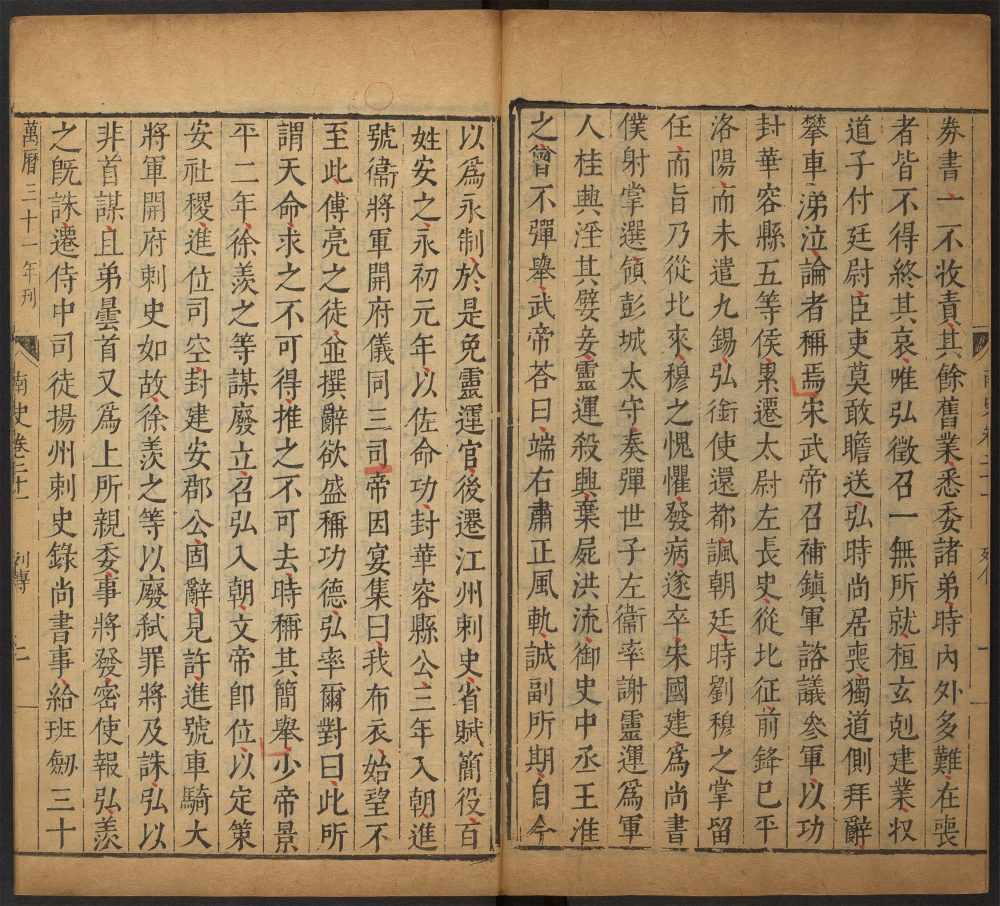 券書一不收責其餘舊業悉委諸弟時內外多難在喪
者皆不得終其哀唯弘徵召一無所就桓玄剋建業收
道子付廷尉臣吏莫敢瞻送弘時尚居喪獨道側拜辭
攀車涕泣論者稱焉宋武帝召補鎮軍諮議參軍以功
封華容縣五等侯累遷太尉左長史從北征前鋒已平
洛陽而未遣九錫弘銜使還都諷朝廷時劉穆之掌留
任而旨乃從北來穆之愧懼發病遂卒宋國建爲尚書
僕射掌選領彭城太守奏彈世子左衞率謝靈運爲軍
人桂興淫其嬖妾靈運殺興棄屍洪流御史中丞王准
之曾不彈舉武帝荅曰端右肅正風軌誠副所期自今
以爲永制於是免靈運官後遷江州刺史省賦簡役百
姓安之永初元年以佐命功封華容縣公三年入朝進
號衞將軍開府儀同三司帝因宴集曰我布衣始望不
至此傅亮之徒並撰辭欲盛稱功德弘率爾對曰此所
謂天命求之不可得推之不可去時稱其簡舉少帝景
平二年徐羨之等謀廢立召弘入朝文帝卽位以定策
安社稷進位司空封建安郡公固辭見許進號車騎大
將軍開府刺史如故徐羨之等以廢弒罪將及誅弘以
非首謀且弟曇首又爲上所親委事將發密使報弘羨
之旣誅遷侍中司徒揚州刺史錄尚書事給班劒三十
萬曆三十一年刊
南史卷二十一
列傳